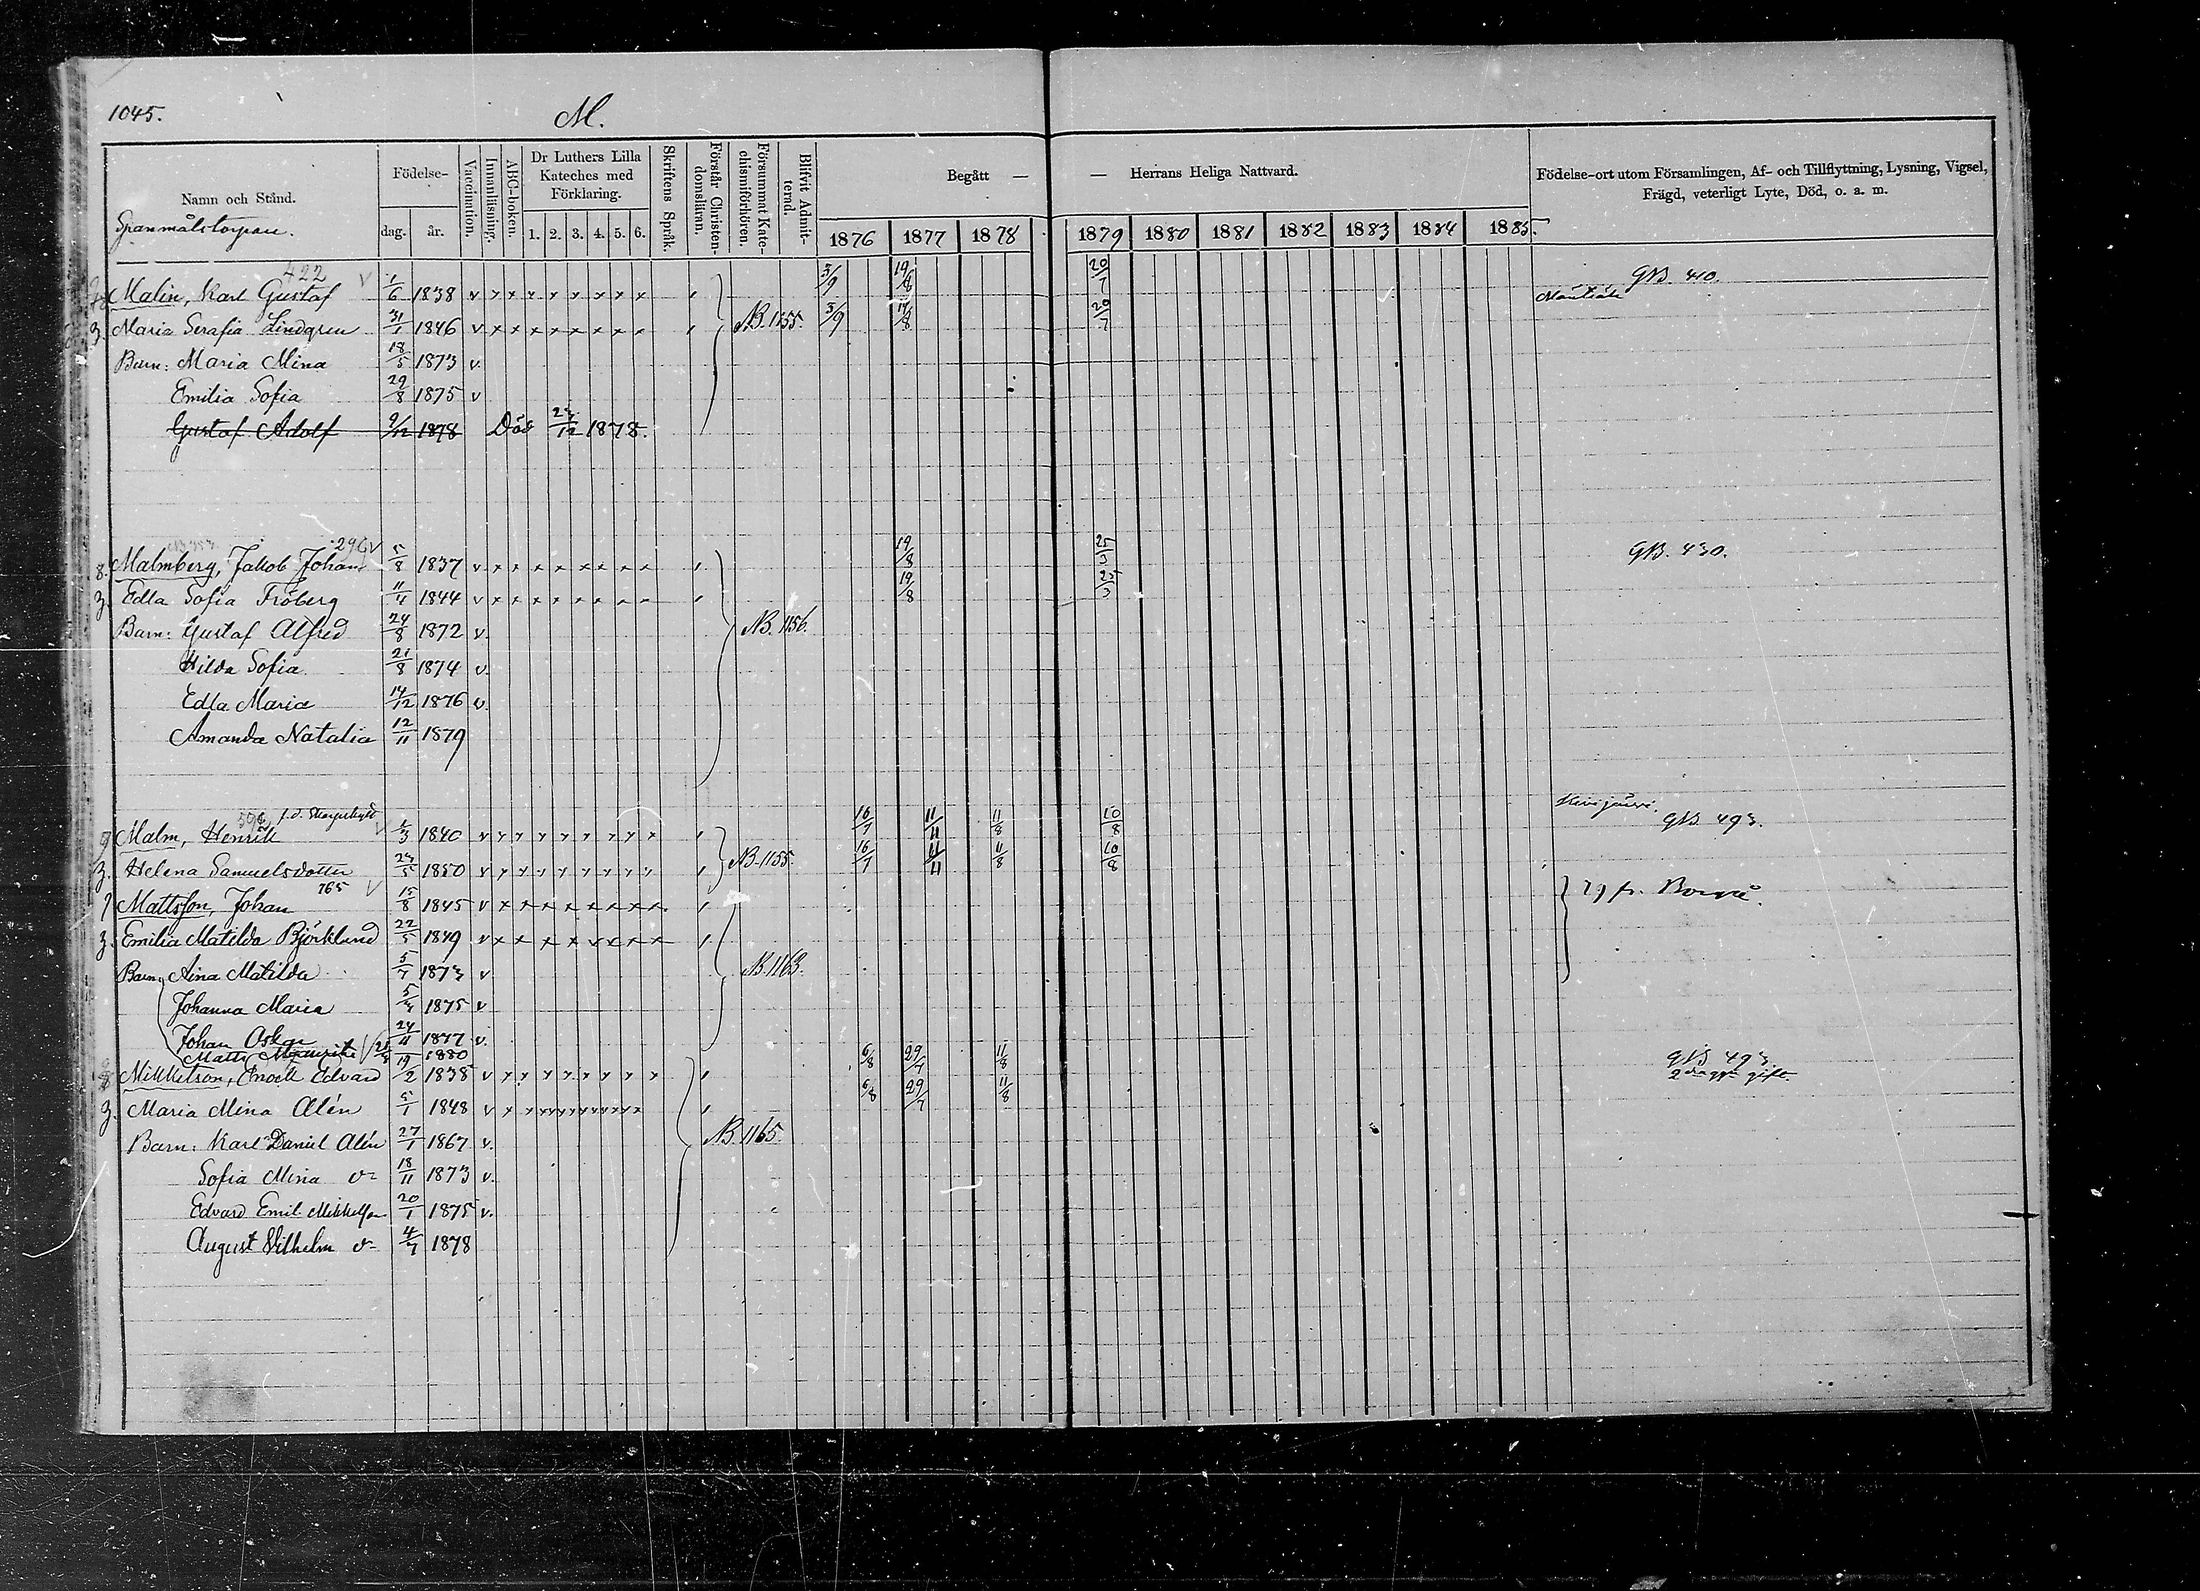 1045.
M.
Namn och Stånd.
Spanmålstorpare.
Födelse-
dag.
år.
Vaccination.
Innanläsning.
ABC-boken.
Dr Luthers Lilla
Kateches med
Förklaring.
1. 2. 3. 4. 5. 6.
Skriftens Språk.
Förstår Christen-
domsläran.
Försummat Kate-
chismiförhören.
Blifvit Admit-
ternd.
Begått — — Herrans Heliga Nattvard.
1876 1877 1878 1879 1880 1881 1882 1883 1884 1885.
Födelse-ort utom Församlingen, Af- och Tillflyttning, Lysning, Vigsel,
Frägd, veterligt Lyte, Död, o. a. m.
422
Malin, Karl Gustaf 1/6 1838 v 3/9 19/8 20/7 GB. 410.
3. Maria Serafia Lindgren 31/1 1846 v NB. 1155. 3/9 19/8 20/7
Barn: Maria Mina 18/5 1873 v.
Emilia Sofia 29/8 1875 v
Gustaf Adolf 9/12 1878 Död 1878.
296 v
8. Malmberg, Jakob Johan 5/8 1837 v 19/8 25/3 GB. 430.
3. Edla Sofia Fröberg 11/11 1844 v 19/8 25/3
Barn: Gustaf Alfred 24/8 1872 v. NB. 1156.
Hilda Sofia 21/8 1874 v.
Edla Maria 14/12 1876 v.
Amanda Natalia 12/11 1879
Malm, Henrik 1840 v 16/7 11/11 11/8 10/8 GB. 493.
3. Helena Samuelsdotter 1850 v NB. 1155. 16/7 11/11 11/8 10/8
765 v
Mattsson, Johan 15/8 1845 v
3. Emilia Matilda Björklund 22/5 1849 v
Barn: Aina Matilda 5/7 1873 v NB. 1163.
Johanna Maria 1875 v
Johan Oskar 24/11 1877 v.
Matts 1880
Mikkelson, Enock Edvard 19/2 1838 v 6/8 29/7 11/8 GB 493.
3. Maria Mina Alén 5/1 1848 v 6/8 29/7 11/8
Barn: Karl Daniel Alén 27/1 1867 v. NB. 1165.
Sofia Mina 18/11 1873 v.
Edvard Emil Mikkelson 20/1 1875 v.
August Vilhelm 4/7 1878